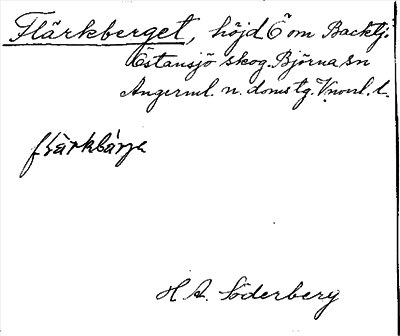 Flärkberget, höjd Ö om Backtj.
Östansjö skog. Björna sn
Ångerml. n. domstg. Vnorrl. l.
flärkbárja
H. A. Söderberg